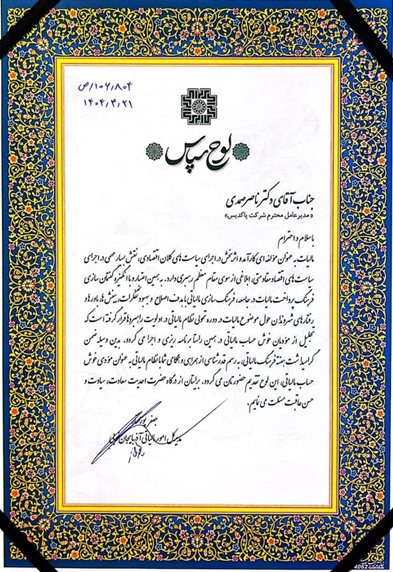 ۱۰۶٫۸۰۴/ص
۱۴۰۴٫۴٫۲۱
لوح سپاس
جناب آقای دکتر ناصر صمدی
«مدیرعامل محترم شرکت پاکدیس»
با سلام و احترام
مالیات به عنوان مؤلفه ای کارآمد و اثربخش در اجرای سیاست های کلان اقتصادی، نقش بسیار مهمی در اجرای
سیاست های اقتصاد مقاومتی، ابلاغی از سوی مقام معظم رهبری دارد. به همین اعتبار و با انگیزه گفتمان سازی
فرهنگ پرداخت مالیات در جامعه، فرهنگ سازی مالیاتی با هدف اصلاح و بهبود تفکرات، بینش ها، باورها و
رفتارهای شهروندان حول موضوع مالیات در دوره تحولی نظام مالیاتی در اولویت راهبردها قرار گرفته است که
تجلیل از مؤدیان خوش حساب مالیاتی در همین راستا برنامه ریزی و اجرا می گردد. بدین وسیله ضمن
گرامیداشت هفته فرهنگ مالیاتی، به رسم قدرشناسی از همراهی و همگامی شما با نظام مالیاتی به عنوان مؤدی خوش
حساب مالیاتی، این لوح تقدیم حضورتان می گردد. برایتان از درگاه حضرت احدیت سعادت، سیادت و
حسن عاقبت مسئلت می نمایم.
مدیرکل امور مالیاتی آذربایجان غربی